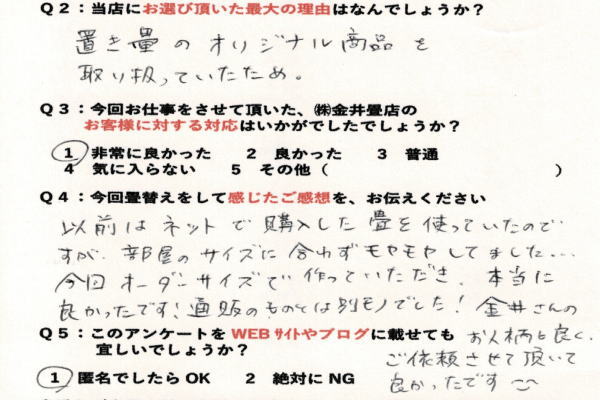 Q2:当店にお選び頂いた最大の理由はなんでしょうか?
置き畳のオリジナル商品を
取り扱っていたため。
Q3:今回お仕事をさせて頂いた、㈱金井畳店の
お客様に対する対応はいかがでしたでしょうか?
1 非常に良かった 2 良かった 3 普通
4 気に入らない 5 その他( )
Q4:今回畳替えをして感じたご感想を、お伝えください
以前はネットで購入した畳を使っていたので
すが、部屋のサイズに合わずモヤモヤしてました...
今回オーダーサイズで作っていただき、本当に
良かったです!通販のものとは別モノでした!金井さんの
お人柄も良く、
ご依頼させて頂いて
良かったです
Q5:このアンケートをWEBサイトやブログに載せても
宜しいでしょうか?
1 匿名でしたらOK 2 絶対にNG